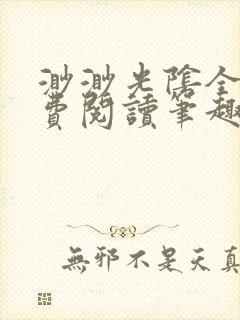 渺渺光陰全
費閱讀筆趣
無邪不是天真